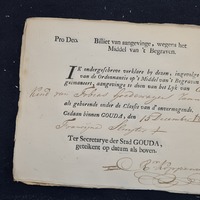 Pro Deo. Billiet van aangevinge, wegens het
Middel van 't Begraven.
IK ondergeschreven verklare by dezen, ingevolge
van de Ordonnantie op 't Middel van 't Begraven
Geëmaneert, aangevinge te doen van het Lyk van
Kind van Tobias
als gehorende onder de Classe van d' onvermogende.
Gedaan binnen GOUDA, den 15 December
Ter Secretarye der Stad GOUDA,
geteikent op datum als boven.